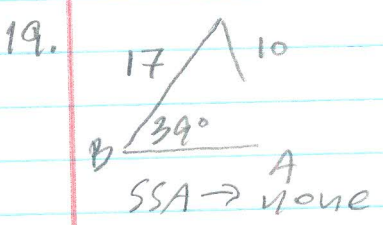 19.
17
10
39°
B
A
SSA → none